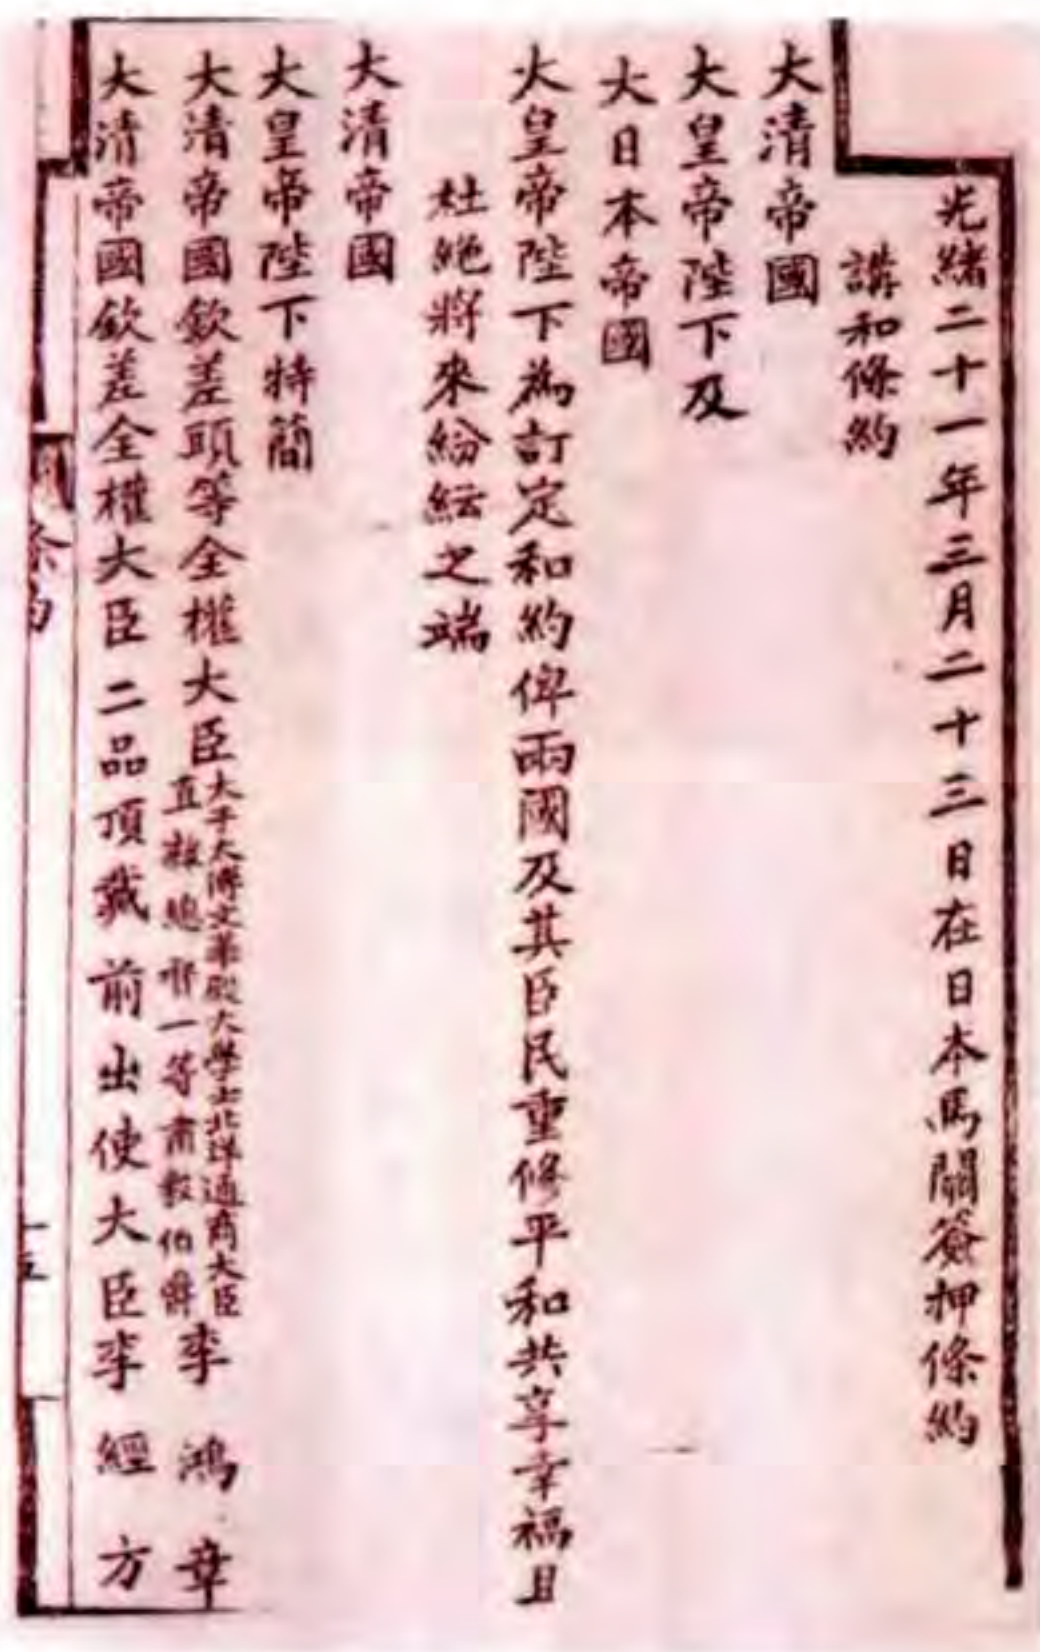 光緒二十一年三月二十三日在日本馬關簽押條約
講和條約
大清帝國
大皇帝陛下及
大日本帝國
大皇帝陛下為訂定和約俾兩國及其臣民重修平和共享幸福且
杜絕將來紛紜之端
大清帝國
大皇帝陛下特簡
大清帝國欽差頭等全權大臣太子太傅文華殿大學士北洋通商大臣直隸總督一等肅毅伯爵李鴻章
大清帝國欽差全權大臣二品頂戴前出使大臣李經方
條約
十五